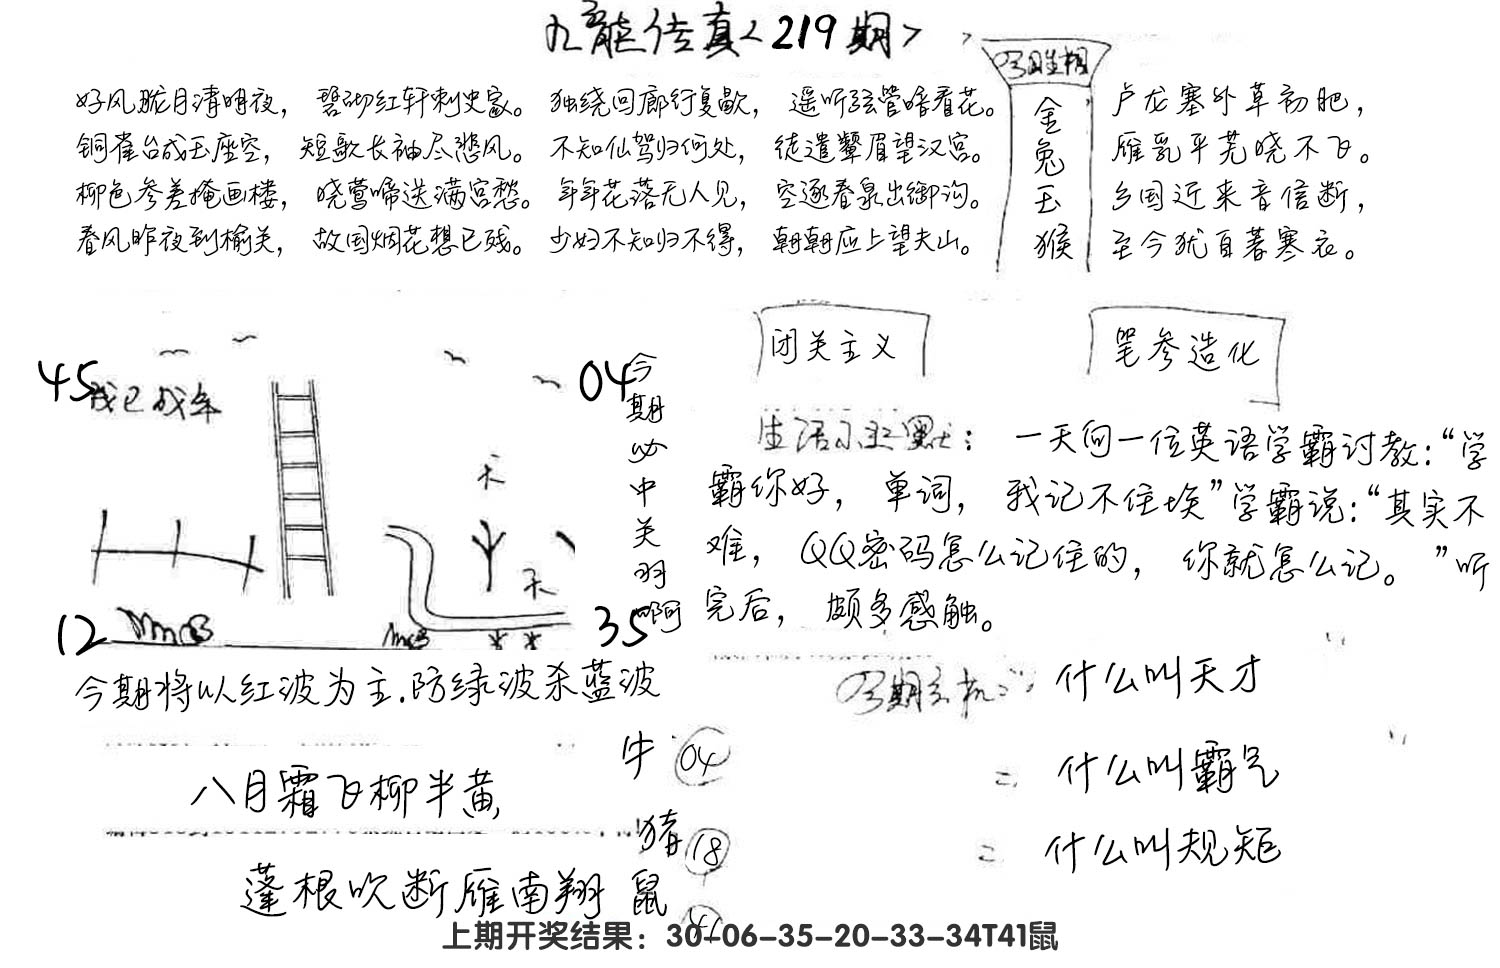 九龙传真<219期>
今日生相
好风胧月清明夜，碧砌红轩刺史家。独绕回廊行复歇，遥听弦管暗看花。
铜雀台成玉座空，短歌长袖尽悲风。不知仙驾归何处，徒遣颦眉望汉宫。
柳色参差掩画楼，晓莺啼送满宫愁。年年花落无人见，空逐春泉出御沟。
春风昨夜到榆关，故国烟花想已残。少妇不知归不得，朝朝应上望夫山。
金兔玉猴
卢龙塞外草初肥，
雁乳平芜晓不飞。
乡国近来音信断，
至今犹自著寒衣。
闭关主义
笔参造化
45
04
我已成年
天
天
12
35
今期必中关羽啊
生活小幽默：一天向一位英语学霸讨教：“学
霸你好，单词，我记不住埃”学霸说：“其实不
难，QQ密码怎么记住的，你就怎么记。”听
完后，颇多感触。
今期将以红波为主.防绿波杀蓝波
今期玄机：什么叫天才
二 什么叫霸气
二 什么叫规矩
牛 04
猪 18
鼠 41
八月霜飞柳半黄
蓬根吹断雁南翔
上期开奖结果：30-06-35-20-33-34T41鼠